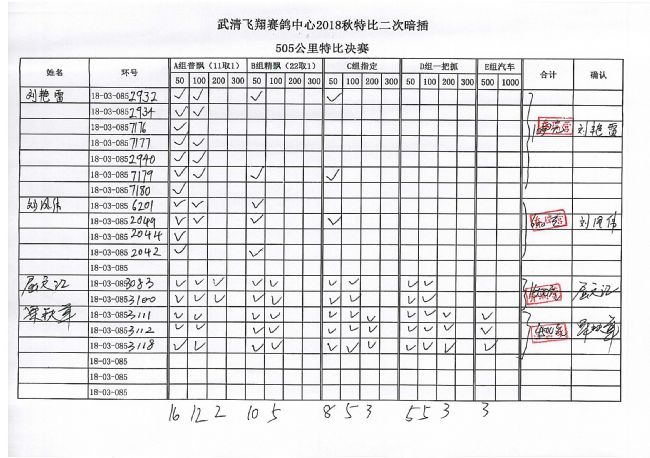 武清飞翔赛鸽中心2018秋特比二次暗插
505公里特比决赛
姓名 环号 A组普飘（11取1） B组精飘（22取1） C组指定 D组一把抓 E组汽车 合计 确认
50 100 200 300 50 100 200 300 50 100 200 300 50 100 200 300 500 1000
刘艳雷 18-03-0852932 ✓ ✓ ✓ ✓
18-03-0852934 ✓ ✓
18-03-0857176 ✓ 刘艳雷
18-03-0857177 ✓ ✓
18-03-0852940 ✓ ✓
18-03-0857179 ✓ ✓ ✓ ✓
18-03-0857180 ✓
18-03-0856201 ✓ ✓ ✓
18-03-0852049 ✓ ✓ ✓ ✓
18-03-0852044 ✓
18-03-0852042 ✓ ✓
18-03-085
18-03-0853083 ✓ ✓ ✓ ✓ ✓ ✓ ✓ ✓ ✓
18-03-0853100 ✓ ✓ ✓ ✓ ✓ ✓ ✓ ✓ ✓
18-03-0853111 ✓ ✓ ✓ ✓ ✓ ✓ ✓ ✓ ✓ ✓ ✓
18-03-0853112 ✓ ✓ ✓ ✓ ✓ ✓ ✓ ✓ ✓ ✓ ✓
18-03-0853118 ✓ ✓ ✓ ✓ ✓ ✓ ✓ ✓ ✓ ✓ ✓
18-03-085
18-03-085
18-03-085
16 12 2 10 5 8 5 3 5 5 3 3